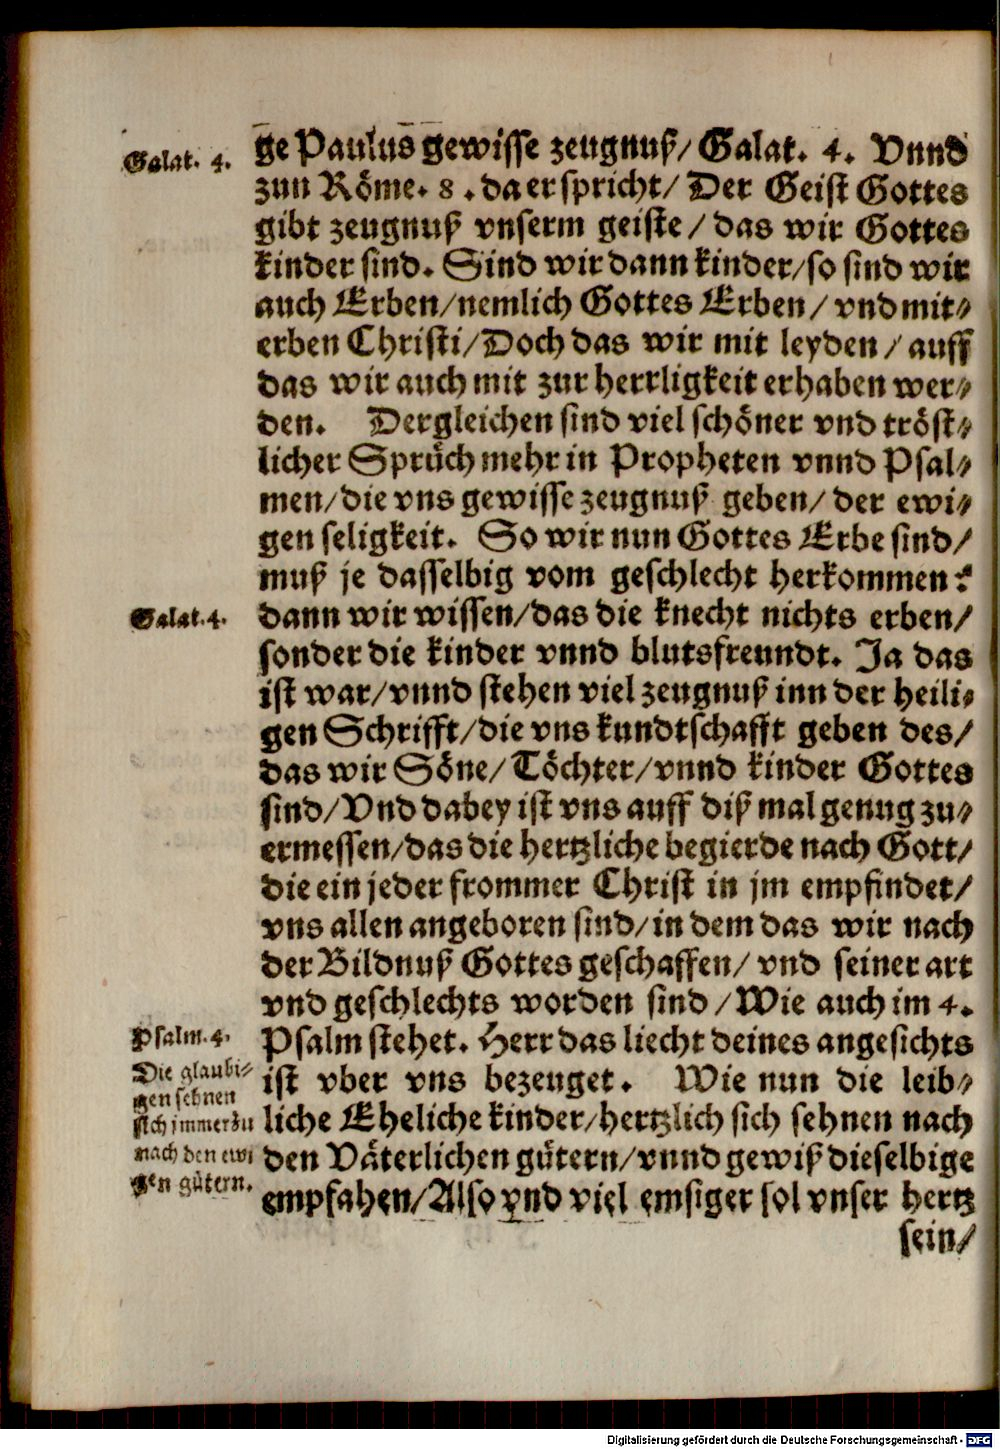 Galat. 4.
ge Paulus gewisse zeugnuß/ Galat. 4. Vnnd
zun Röme. 8. da er spricht/ Der Geist Gottes
gibt zeugnuß vnserm geiste/ das wir Gottes
kinder sind. Sind wir dann kinder/ so sind wir
auch Erben/ nemlich Gottes Erben/ vnd mit⸗
erben Christi/ Doch das wir mit leyden/ auff
das wir auch mit zur herrligkeit erhaben wer⸗
den. Dergleichen sind viel schöner vnd tröst⸗
licher Sprüch mehr in Propheten vnnd Psal⸗
men/ die vns gewisse zeugnuß geben/ der ewi⸗
gen seligkeit. So wir nun Gottes Erbe sind/
muß je dasselbig vom geschlecht herkommen:
Galat. 4.
dann wir wissen/ das die knecht nichts erben/
sonder die kinder vnnd blutsfreundt. Ja das
ist war/ vnnd stehen viel zeugnuß inn der heili⸗
gen Schrifft/ die vns kundtschafft geben des/
das wir Söne/ Töchter/ vnnd kinder Gottes
sind/ Vnd dabey ist vns auff diß mal genug zu⸗
ermessen/ das die hertzliche begierde nach Gott/
die ein jeder frommer Christ in jm empfindet/
vns allen angeboren sind/ in dem das wir nach
der Bildnuß Gottes geschaffen/ vnd seiner art
vnd geschlechts worden sind/ Wie auch im 4.
Psalm. 4.
Psalm stehet. Herr das liecht deines angesichts
ist vber vns bezeuget. Wie nun die leib⸗
liche Eheliche kinder/ hertzlich sich sehnen nach
den Väterlichen gütern/ vnnd gewiß dieselbige
empfahen/ Also vnd viel emsiger sol vnser hertz
Die glaubi⸗
gen sehnen
sich jmmerzu
nach den ewi
gen gütern.
sein/
Digitalisierung gefördert durch die Deutsche Forschungsgemeinschaft - DFG